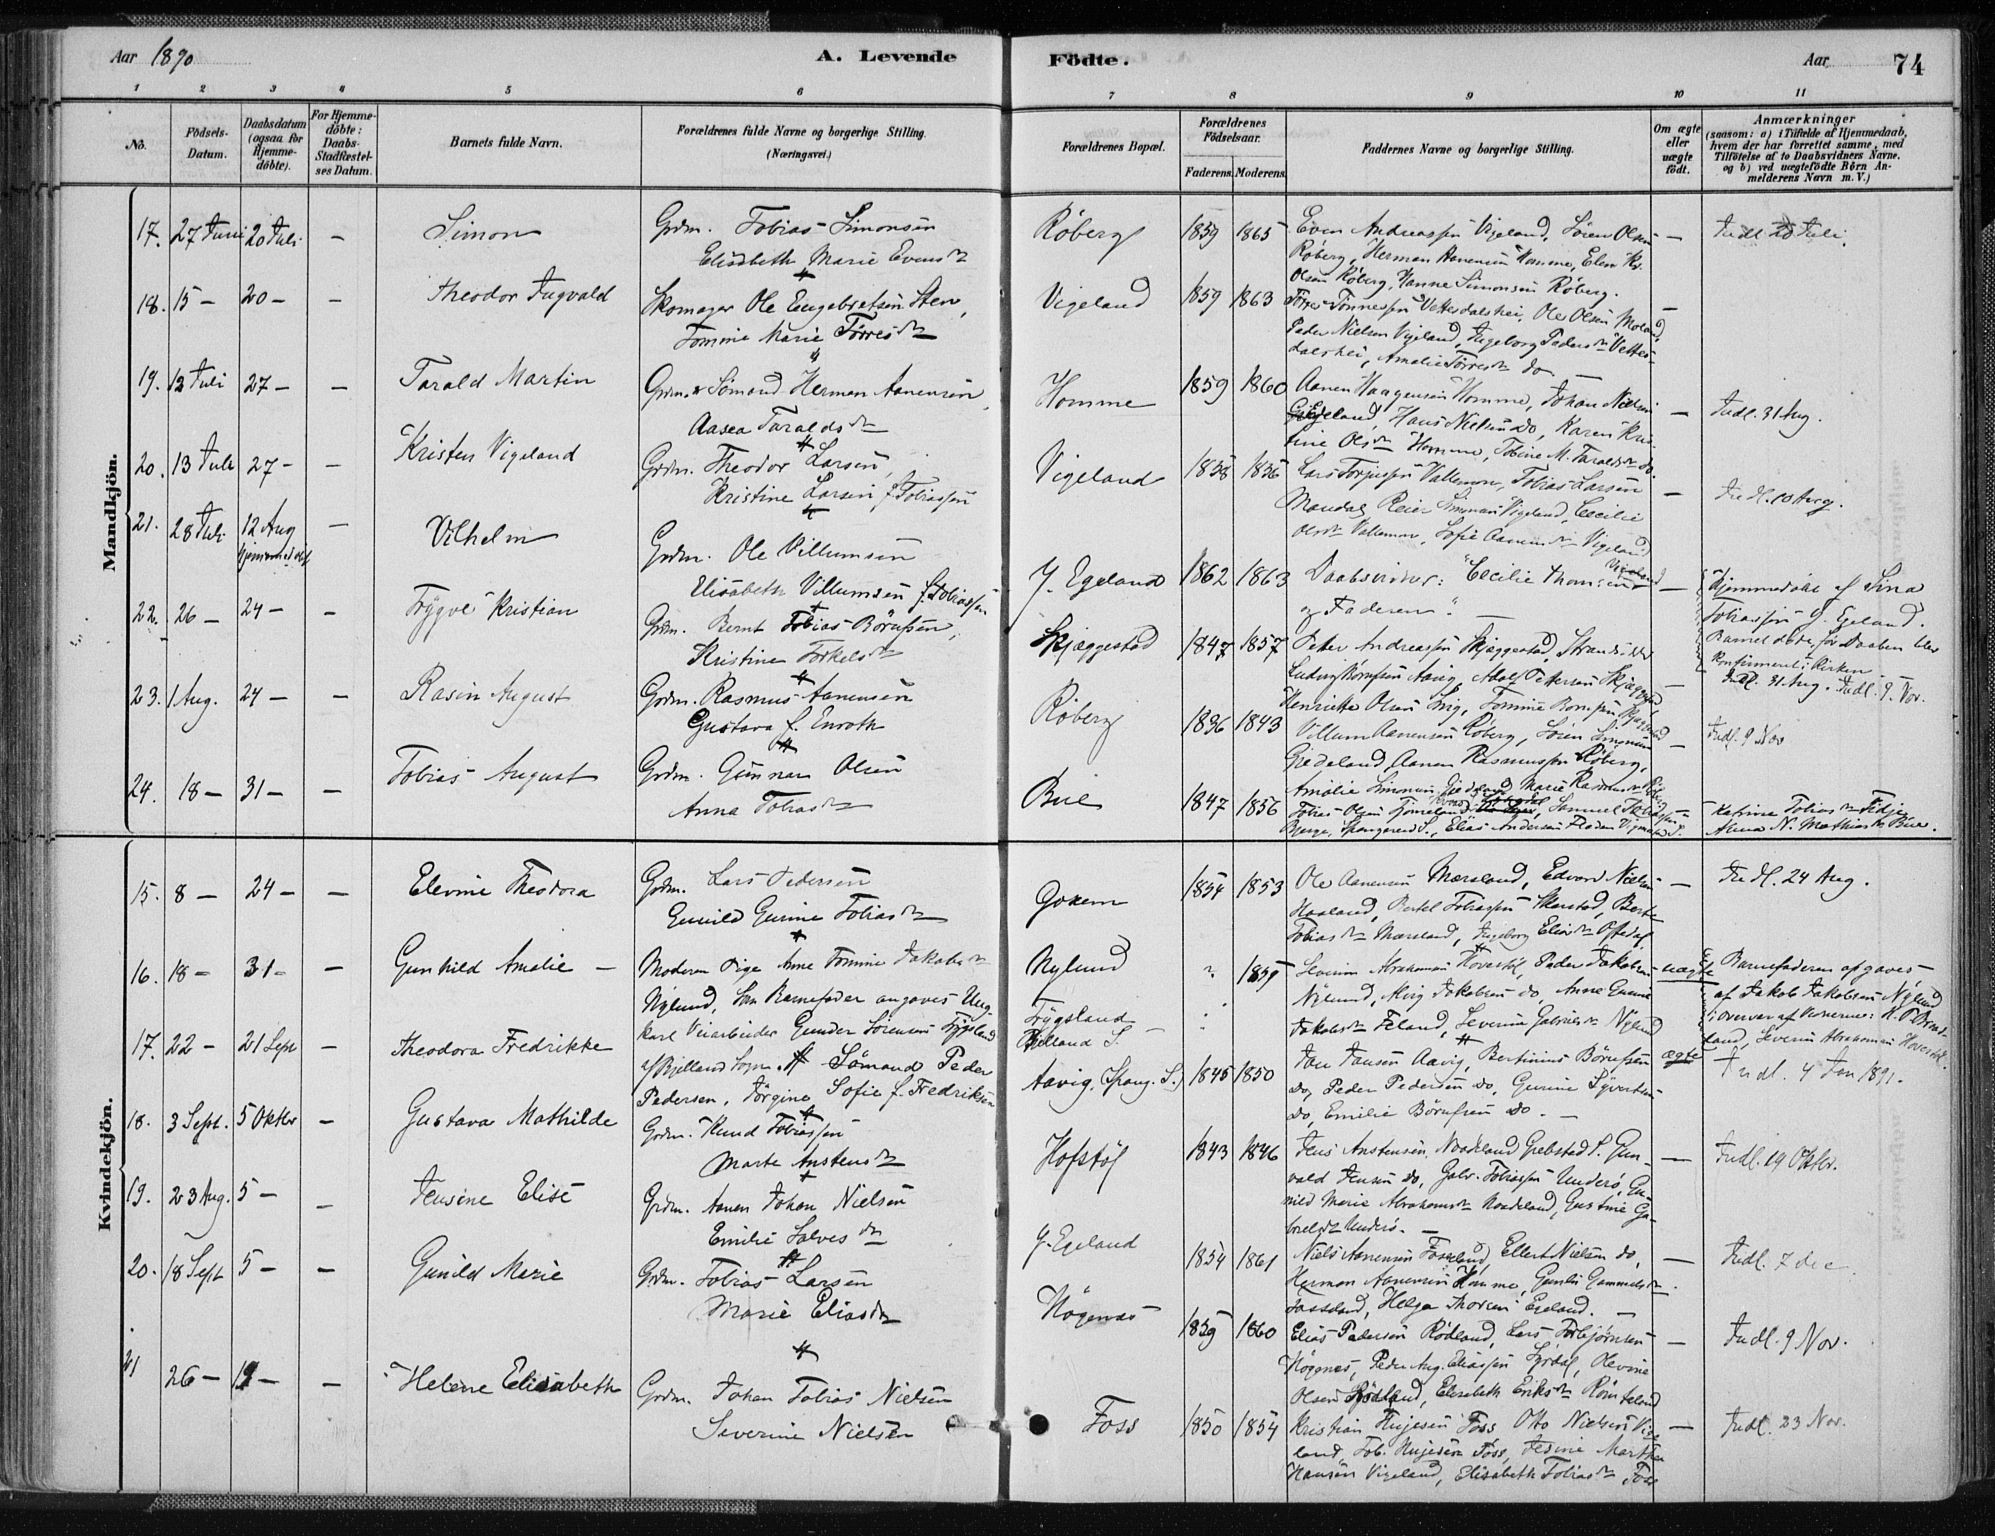 Aar 1890
A. Levende
Födte.
Aar
74
1 2 3 4 5 6 7 8 9 10 11
No.
Födsels-Datum.
Daabsdatum (ogsaa for Hjemme-döbte).
For Hjemme-döbte: Daabs-Stadfæstel-ses Datum.
Barnets fulde Navn.
Forældrenes fulde Navne og borgerlige Stilling. (Næringsvei.)
Forældrenes Bopæl.
Forældrenes Födselsaar.
Faderens. Moderens.
Faddernes Navne og borgerlige Stilling.
Om ægte eller uægte födt.
Anmærkninger
(saasom: a) i Tilfælde af Hjemmedaab, hvem der har forrettet samme, med Tilföielse af to Daabsvidners Navne. og b) ved uægtefödte Börn An-melderens Navn m. V.)
Mandkjön.
17. 27 Juni 20 Juli - Simon
Grdm. Tobias Simonsen
Elisabeth Marie Evensdtr
Røberg 1859 1865
Even Andreassen Vigeland, Sören Olsen
Røberg, Herman Aanensen Homme,
Olsen Røberg, Hanne Simonsen Røberg.
Indl. 20 Juli.
18. 15 - 20 - - Theodor Ingvald
Skomager Ole Engebretsen Sten,
Tomine Marie Törresdtr
Vigeland 1859 1863
Törres Tönnessen Vettedalshei, Ole Olsen Moland,
Peder Nielsen Vigeland, Ingeborg Pedersdtr Vette-
dalshei, Amalie Törresdtr do -
19. 12 Juli 27 - - Tarald Martin
Grdm. & Sömand Herman Aanensen,
Aasea Taraldsdtr
Homme 1859 1860
Aanen Haagensen Homme, Johan Nielsen
Egeland, Hans Nielsen do, Karen Kris-
tine Olsdtr Homme, Tobine M. Taraldsdtr do.
Indl. 31 Aug.
20. 13 Juli 27 - - Kristen Vigeland
Grdm. Theodor Larsen
Kristine Larsen f. Tobiassen
Vigeland 1858 1856
Lars Torjussen Vallemon, Tobias Larsen
Mandal, Reier Simonsen Vigeland, Cecilie
Olsdtr Vallemon, Sofie Aanensdtr Vigeland
Indl. 10 Aug.
21. 28 Juli 12 Aug hjemmedöbt - Vilhelm
Grdm. Ole Villumsen
Elisabeth Villumsen f. Tobiassen
Y. Egeland 1862 1863
Daabsvidner: Cecilie Thomsen Vigeland
og Faderen. -
Hjemmedöbt af Sina
Tobiassen Y. Egeland.
Barnet döde, før Daaben blev
konfirmeret i Kirken
22. 26 - 24 - - Trygve Kristian
Grdm. Bernt Tobias Börufsen,
Kristine Torkelsdtr
Skjeggestad 1847 1857
Peter Andreassen Skjeggestad,
Ludvig Börufsen Aavig, Adolf Pettersen Skjeggestad
Indl. 31 Aug. Indl. 9. Nov.
23. 1 Aug. 24 - - Rasin August
Grdm. Rasmus Aanensen
Gustava f. Enroth
Røberg 1836 1843
Villum Aanensen Røberg, Sören Simonsen
Giedeland, Aanen Rasmussen Røberg,
Indl. 9 Nov
24. 18 - 31 - - Tobias August
Grdm. Gunnar Olsen
Anna Tobiasdtr
Bue 1847 1856
Katrine Tobiasdtr Fidje
Anna N. Mathiasdtr Bue.
Kvindekjön.
15. 8 - 24 - - Elevine Theodora
Grdm. Lars Pedersen
Gunild Gurine Tobiasdtr
1854 1853
Ole Aanensen Mærsland, Edvard Nielsen
Haaland, Bertel Tobiassen Skarstad, Berte
Tobiasdtr Mærsland, Ingeborg Eliasdtr Oftedal
Indl. 24 Aug.
16. 18 - 31 - - Gunhild Amalie -
Moderen Pige Anne Tomine Jakobsdtr
Nylund, Som Barnefader angaves Ung-
karl Veiarbeider Gunder Sörensen Trygsland
af Bjelland Sogn.
Nylund
Trygsland
Bjelland S.
1859
Severin Abrahamsen Hovestöl, Peder Jakobsen
Nylund, Alvig Jakobsen do, Anne Gurine
Jakobsdtr Feland, Severine Gabrielsdtr Nylund
uægte
Barnefaderen opgaves
af Jakob Jakobsen Nylund
land, Severin Abrahamsen Hovestöl.
17. 22 - 21 Sept - Theodora Fredrikke
Sömand Peder
Pedersen, Jörgine Sofie f. Fredriksen
Aavig, Spang. S. 1845 1850
Jan Jansen Aavig, Bertinius Börufsen
do, Peder Pedersen do, Gurine Syvertsen
do, Emilie Börufsen do. -
ægte
Indl. 4 Jan 1891.
18. 3 Sept. 5 Oktbr - Gustava Mathilde
Grdm. Knud Tobiassen
Marte Anstensdtr
Hofstöl 1843 1846
Jens Anstensen, Noddeland Grebstad S. Gun-
vald Jensen do, Gabr. Tobiassen Underö, Gu-
nild Marie Abrahamsdtr Noddeland, Gustine Ga-
brielsdtr Underö. -
Indl. 19 Oktbr.
19. 23 Aug. 5 - - Jensine Elise
Grdm. Aanen Johan Nielsen
Emilie Salvesdtr
Y. Egeland 1854 1861
Niels Aanensen Fossland, Ellert Nielsen do,
Herman Aanensen Homme,
Fossland, Helga Thorsen Egeland. -
Indl. 7 dec.
20. 18 Sept 5 - - Gunild Marie
Grdm. Tobias Larsen
Marie Eliasdtr
Högenes 1859 1860
Elias Pedersen Rödland, Lars Torbjörnsen
Högenes, Peder Aug. Eliassen Syrdal, Olevine
Olsen Rödland, Elisabeth Eriksdtr
Indl. 9 Nov.
21 26 - 19 - - Helene Elisabeth
Grdm. Johan Tobias Nielsen
Severine Nielsen
Foss 1850 1854
Kristian Hujesen Foss Otto Nielsen Vige-
land, Tob. Hujesen Foss, Jesine Marthea
Hansen Vigeland, Elisabeth Tobiasdtr Foss
Indl. 23 Nov.